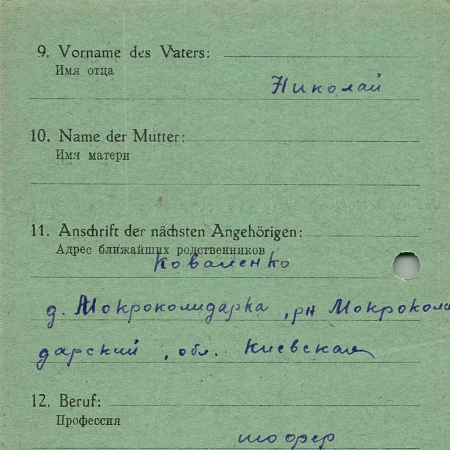 9. Vorname des Vaters:
Имя отца
Николай
10. Name der Mutter:
Имя матери
11. Anschrift der nächsten Angehörigen:
Адрес ближайших родственников
Коваленко
д. Мокроколидарка, рн Мокрокали
дарский, обл. Киевская
12. Beruf:
Профессия
шофер